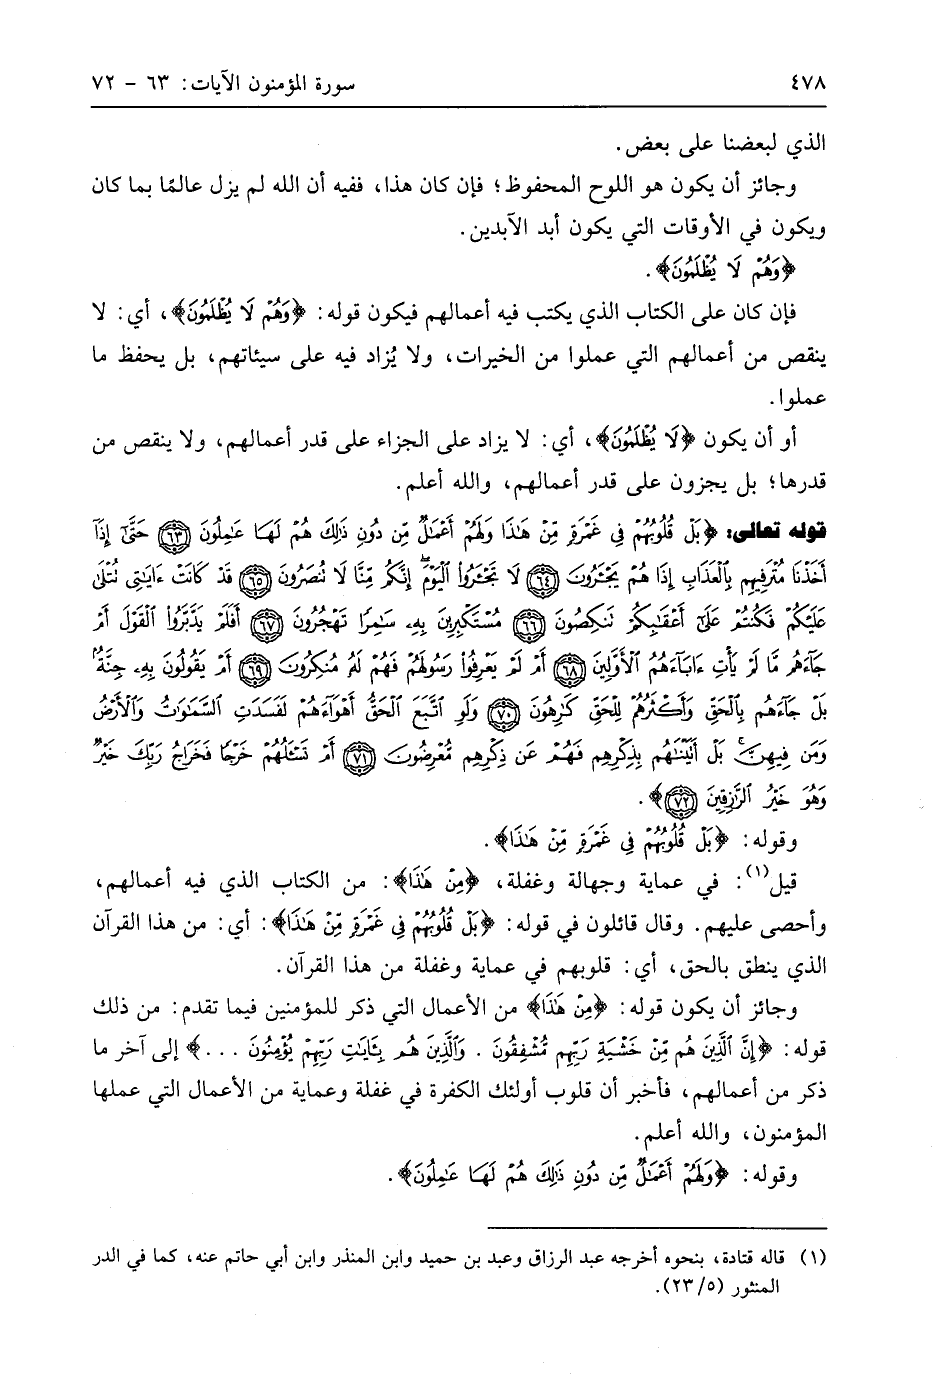 ٤٧٨ سورة المؤمنون الآيات: ٦٣ - ٧٢
الذي لبعضنا على بعض.
وجائز أن يكون هو اللوح المحفوظ؛ فإن كان هذا، ففيه أن الله لم يزل عالمًا بما كان
ويكون في الأوقات التي يكون أبد الآبدين.
﴿وَهُمۡ لَا يُظۡلَمُونَ﴾.
فإن كان على الكتاب الذي يكتب فيه أعمالهم فيكون قوله: ﴿وَهُمۡ لَا يُظۡلَمُونَ﴾، أي: لا
ينقص من أعمالهم التي عملوا من الخيرات، ولا يُزاد فيه على سيئاتهم، بل يحفظ ما
عملوا.
أو أن يكون ﴿لَا يُظۡلَمُونَ﴾، أي: لا يزاد على الجزاء على قدر أعمالهم، ولا ينقص من
قدرها؛ بل يجزون على قدر أعمالهم، والله أعلم.
قوله تعالى: ﴿بَلۡ قُلُوبُهُمۡ فِي غَمۡرَةٖ مِّنۡ هَٰذَا وَلَهُمۡ أَعۡمَٰلٞ مِّن دُونِ ذَٰلِكَ هُمۡ لَهَا عَٰمِلُونَ ٦٣ حَتَّىٰٓ إِذَآ
أَخَذۡنَا مُتۡرَفِيهِم بِٱلۡعَذَابِ إِذَا هُمۡ يَجۡـَٔرُونَ ٦٤ لَا تَجۡـَٔرُواْ ٱلۡيَوۡمَۖ إِنَّكُم مِّنَّا لَا تُنصَرُونَ ٦٥ قَدۡ كَانَتۡ ءَايَٰتِي تُتۡلَىٰ
عَلَيۡكُمۡ فَكُنتُمۡ عَلَىٰٓ أَعۡقَٰبِكُمۡ تَنكِصُونَ ٦٦ مُسۡتَكۡبِرِينَ بِهِۦ سَٰمِرٗا تَهۡجُرُونَ ٦٧ أَفَلَمۡ يَدَّبَّرُواْ ٱلۡقَوۡلَ أَمۡ
جَآءَهُم مَّا لَمۡ يَأۡتِ ءَابَآءَهُمُ ٱلۡأَوَّلِينَ ٦٨ أَمۡ لَمۡ يَعۡرِفُواْ رَسُولَهُمۡ فَهُمۡ لَهُۥ مُنكِرُونَ ٦٩ أَمۡ يَقُولُونَ بِهِۦ جِنَّةُۢۚ
بَلۡ جَآءَهُم بِٱلۡحَقِّ وَأَكۡثَرُهُمۡ لِلۡحَقِّ كَٰرِهُونَ ٧٠ وَلَوِ ٱتَّبَعَ ٱلۡحَقُّ أَهۡوَآءَهُمۡ لَفَسَدَتِ ٱلسَّمَٰوَٰتُ وَٱلۡأَرۡضُ
وَمَن فِيهِنَّۚ بَلۡ أَتَيۡنَٰهُم بِذِكۡرِهِمۡ فَهُمۡ عَن ذِكۡرِهِم مُّعۡرِضُونَ ٧١ أَمۡ تَسۡـَٔلُهُمۡ خَرۡجٗا فَخَرَاجُ رَبِّكَ خَيۡرٞۖ
وَهُوَ خَيۡرُ ٱلرَّٰزِقِينَ ٧٢﴾.
وقوله: ﴿بَلۡ قُلُوبُهُمۡ فِي غَمۡرَةٖ مِّنۡ هَٰذَا﴾.
قيل(١): في عماية وجهالة وغفلة، ﴿مِّنۡ هَٰذَا﴾: من الكتاب الذي فيه أعمالهم،
وأحصى عليهم. وقال قائلون في قوله: ﴿بَلۡ قُلُوبُهُمۡ فِي غَمۡرَةٖ مِّنۡ هَٰذَا﴾: أي: من هذا القرآن
الذي ينطق بالحق، أي: قلوبهم في عماية وغفلة من هذا القرآن.
وجائز أن يكون قوله: ﴿مِّنۡ هَٰذَا﴾ من الأعمال التي ذكر للمؤمنين فيما تقدم: من ذلك
قوله: ﴿إِنَّ ٱلَّذِينَ هُم مِّنۡ خَشۡيَةِ رَبِّهِم مُّشۡفِقُونَ . وَٱلَّذِينَ هُم بِـَٔايَٰتِ رَبِّهِمۡ يُؤۡمِنُونَ ...﴾ إلى آخر ما
ذكر من أعمالهم، فأخبر أن قلوب أولئك الكفرة في غفلة وعماية من الأعمال التي عملها
المؤمنون، والله أعلم.
وقوله: ﴿وَلَهُمۡ أَعۡمَٰلٞ مِّن دُونِ ذَٰلِكَ هُمۡ لَهَا عَٰمِلُونَ﴾.
(١) قاله قتادة، بنحوه أخرجه عبد الرزاق وعبد بن حميد وابن المنذر وابن أبي حاتم عنه، كما في الدر
المنثور (٢٣/٥).